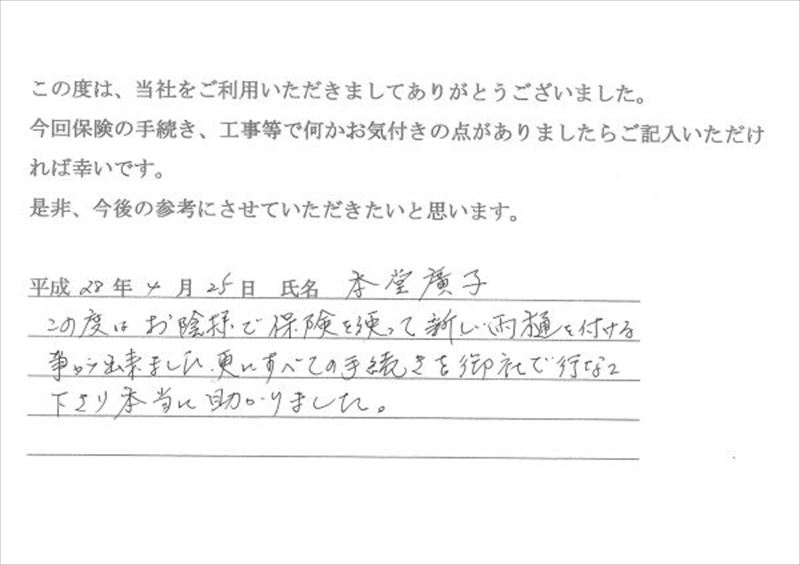 この度は、当社をご利用いただきましてありがとうございました。
今回保険の手続き、工事等で何かお気付きの点がありましたらご記入いただけ
れば幸いです。
是非、今後の参考にさせていただきたいと思います。
平成 28 年 4 月 25 日 氏名 本堂廣子
この度はお陰様で保険を使って新しい雨樋を付ける
事が出来ました。更にすべての手続きを御社で行なって
下さり本当に助かりました。